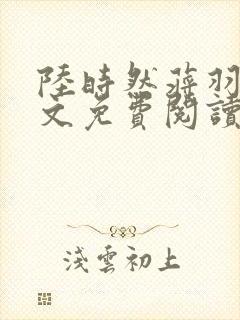 陸時然蔣羽
文免費閱讀
淺雲初上